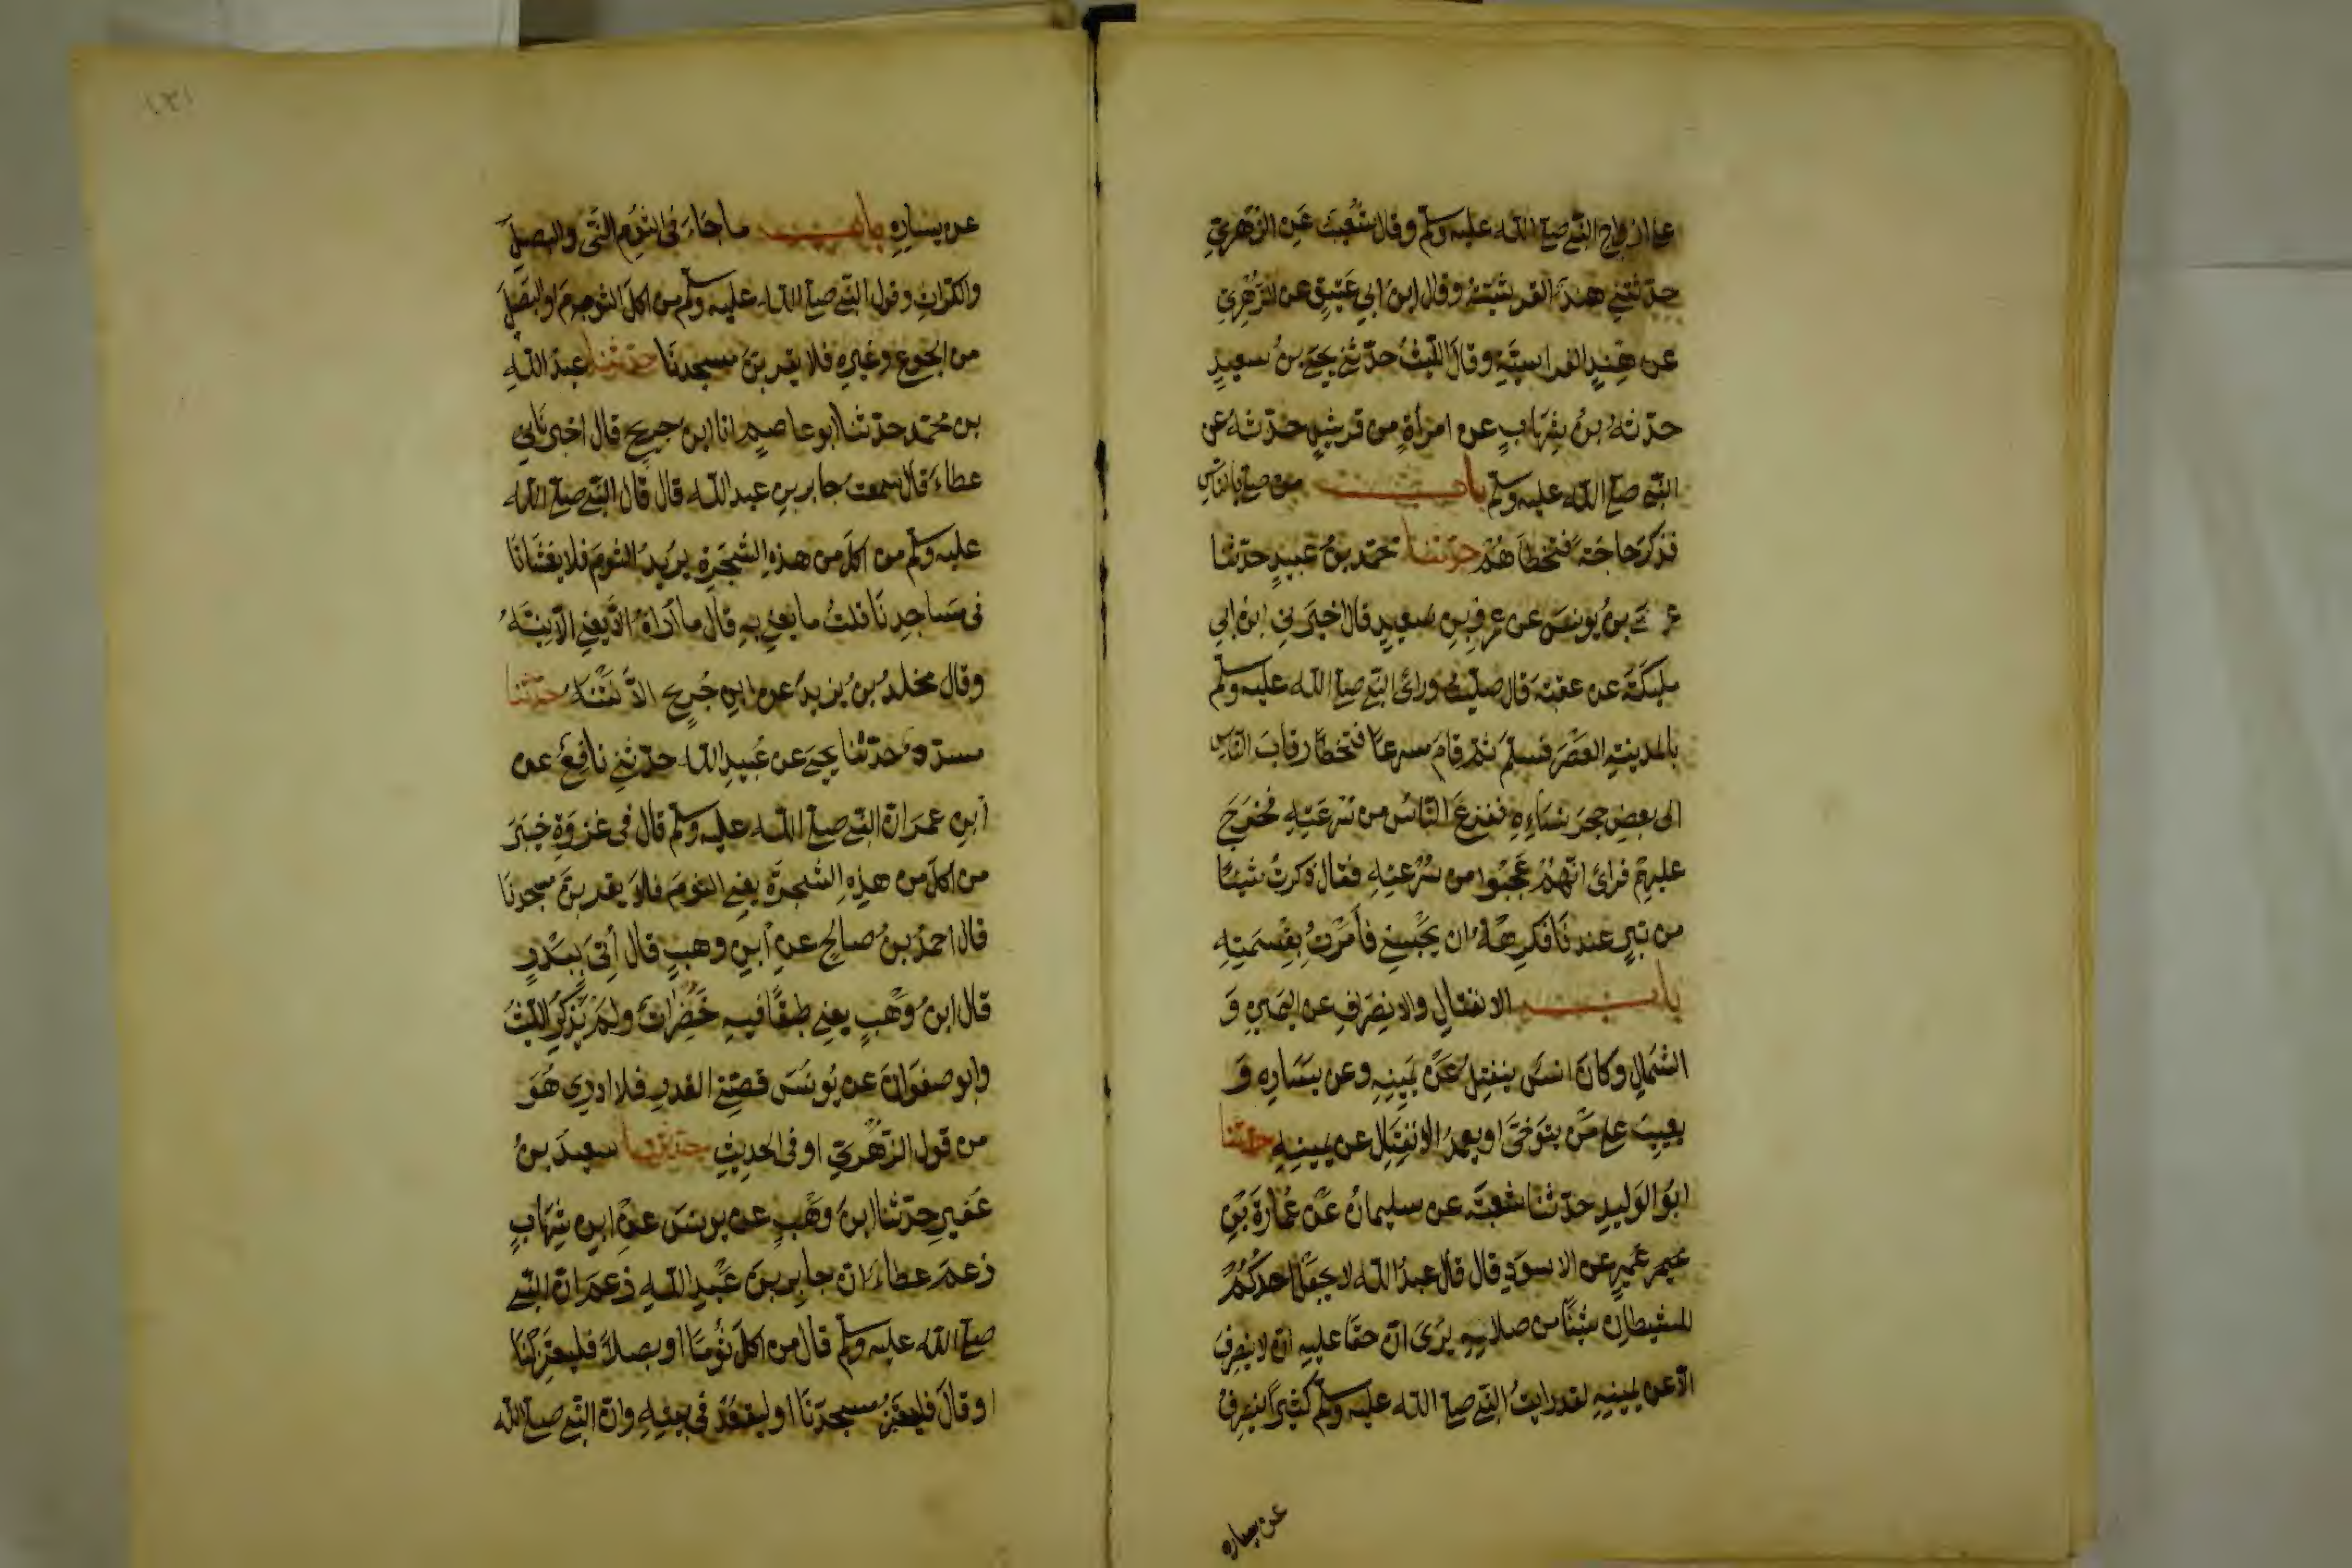 من ازواج النبي صلى الله عليه وسلم وقال شعيب عن الزهري
حدثتني هند القرشية وقال ابن ابي عتيق عن الزهري
عن هند الفراسية وقال الليث حدثني يحيى بن سعيد
حدثه بن شهاب عن امرأة من قريش حدثته عن
النبي صلى الله عليه وسلم باب من صلى بالناس
فذكر حاجة فتخطاهم حدثنا محمد بن عبيد حدثنا
عيسى بن يونس عن عمر بن سعيد قال اخبرني ابن ابي
مليكة عن عقبة قال صليت ورائ النبي صلى الله عليه وسلم
بالمدينة العصر فسلم ثم قام مسرعا فتخطا رقاب الناس
الى بعض حجر نسائه ففزع الناس من سرعته فخرج
عليهم فرائ انهم عجبوا من سرعته فقال ذكرت شيئا
من تبر عندنا فكرهت ان يحبسني فأمرت بقسمته
باب الانفتال والانصراف عن اليمين و
الشمال وكان انس ينفتل عن يمينه وعن يساره و
يعيب على من يتوخى او يعمد الانفتال عن يمينه حدثنا
ابو الوليد حدثنا شعبة عن سليمان عن عمارة بن
عمير عن الاسود قال قال عبد الله لا يجعل احدكم
للشيطان شيئا من صلاته يرى ان حقا عليه ان لا ينصرف
الا عن يمينه لقد رايت النبي صلى الله عليه وسلم كثيرا ينصرف
عن يساره
١٣١
عن يساره باب ما جاء فى الثوم النى والبصل
والكراث وقول النبي صلى الله عليه وسلم من اكل الثوم او البصل
من الجوع وغيره فلا يقربن مسجدنا حدثنا عبد الله
بن محمد حدثنا ابو عاصم انا ابن جريج قال اخبرنى
عطاء قال سمعت جابر بن عبد الله قال قال النبي صلى الله
عليه وسلم من اكل من هذه الشجرة يريد الثوم فلا يغشانا
فى مساجدنا قلت ما يعني به قال ما أراه يعني الا نيئه
وقال مخلد بن يزيد عن ابن جريج الا نتنه حدثنا
مسدد حدثنا يحيى عن عبيد الله حدثني نافع عن
ابن عمر ان النبي صلى الله عليه وسلم قال فى غزوة خيبر
من اكل من هذه الشجرة يعني الثوم فلا يقربن مسجدنا
قال احمد بن صالح عن ابن وهب قال أتى ببدر
قال ابن وهب يعني طبقا فيه خضرات ولم يذكر الليث
وابو صفوان عن يونس قصة القدر فلا ادري هو
من قول الزهري او فى الحديث حدثنا سعيد بن
عفير حدثنا ابن وهب عن يونس عن ابن شهاب
زعم عطاء ان جابر بن عبد الله زعم ان النبي
صلى الله عليه وسلم قال من اكل ثوما او بصلا فليعتزلنا
او قال فليعتزل مسجدنا او ليقعد فى بيته وان النبي صلى الله